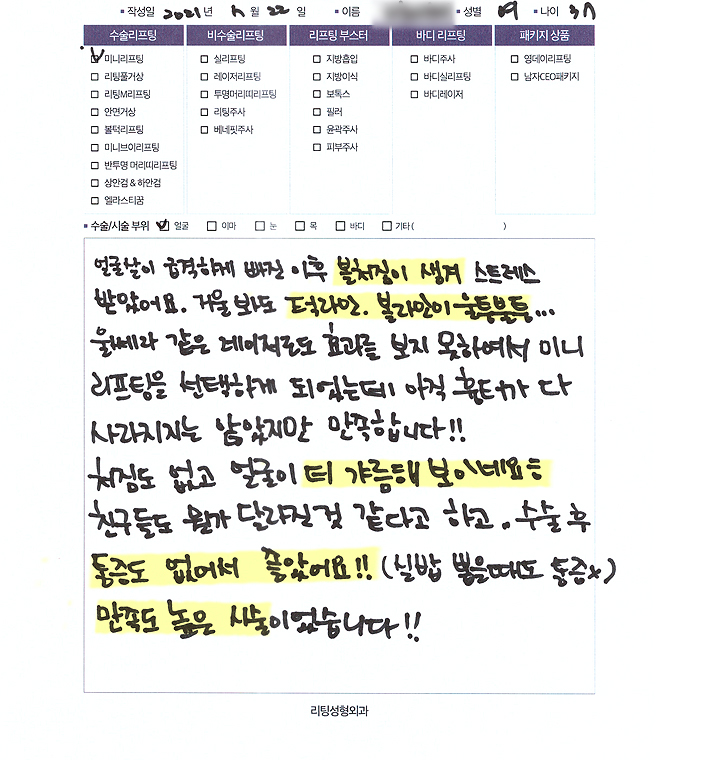 작성일 2021년 월 22일 이름 성별 여 나이
수술리프팅 비수술리프팅 리프팅 부스터 바디 리프팅 패키지 상품
미니리프팅 실리프팅 지방흡입 바디주사 영데이리프팅
리팅풀거상 레이저리프팅 지방이식 바디실리프팅 남자CEO패키지
리팅M리프팅 투명머리띠리프팅 보톡스 바디레이저
안면거상 리팅주사 필러
볼턱리프팅 베네핏주사 윤곽주사
미니브이리프팅 피부주사
반투명 머리띠리프팅
상안검 & 하안검
엘라스티꿈
수술/시술 부위 얼굴 이마 눈 목 바디 기타( )
얼굴살이 급격하게 빠진 이후 볼처짐이 생겨 스트레스
받았어요. 거울 봐도 턱라인. 볼라인이 울퉁불퉁...
울쎄라 같은 레이저로도 효과를 보지 못하여서 미니
리프팅을 선택하게 되었는데 아직 흉터가 다
사라지지는 않았지만 만족합니다!!
처짐도 없고 얼굴이 더 갸름해 보이네요
친구들도 뭔가 달라진것 같다고 하고. 수술 후
통증도 없어서 좋았어요!! (실밥 뽑을때도 통증x)
만족도 높은 시술이었습니다!!
리팅성형외과